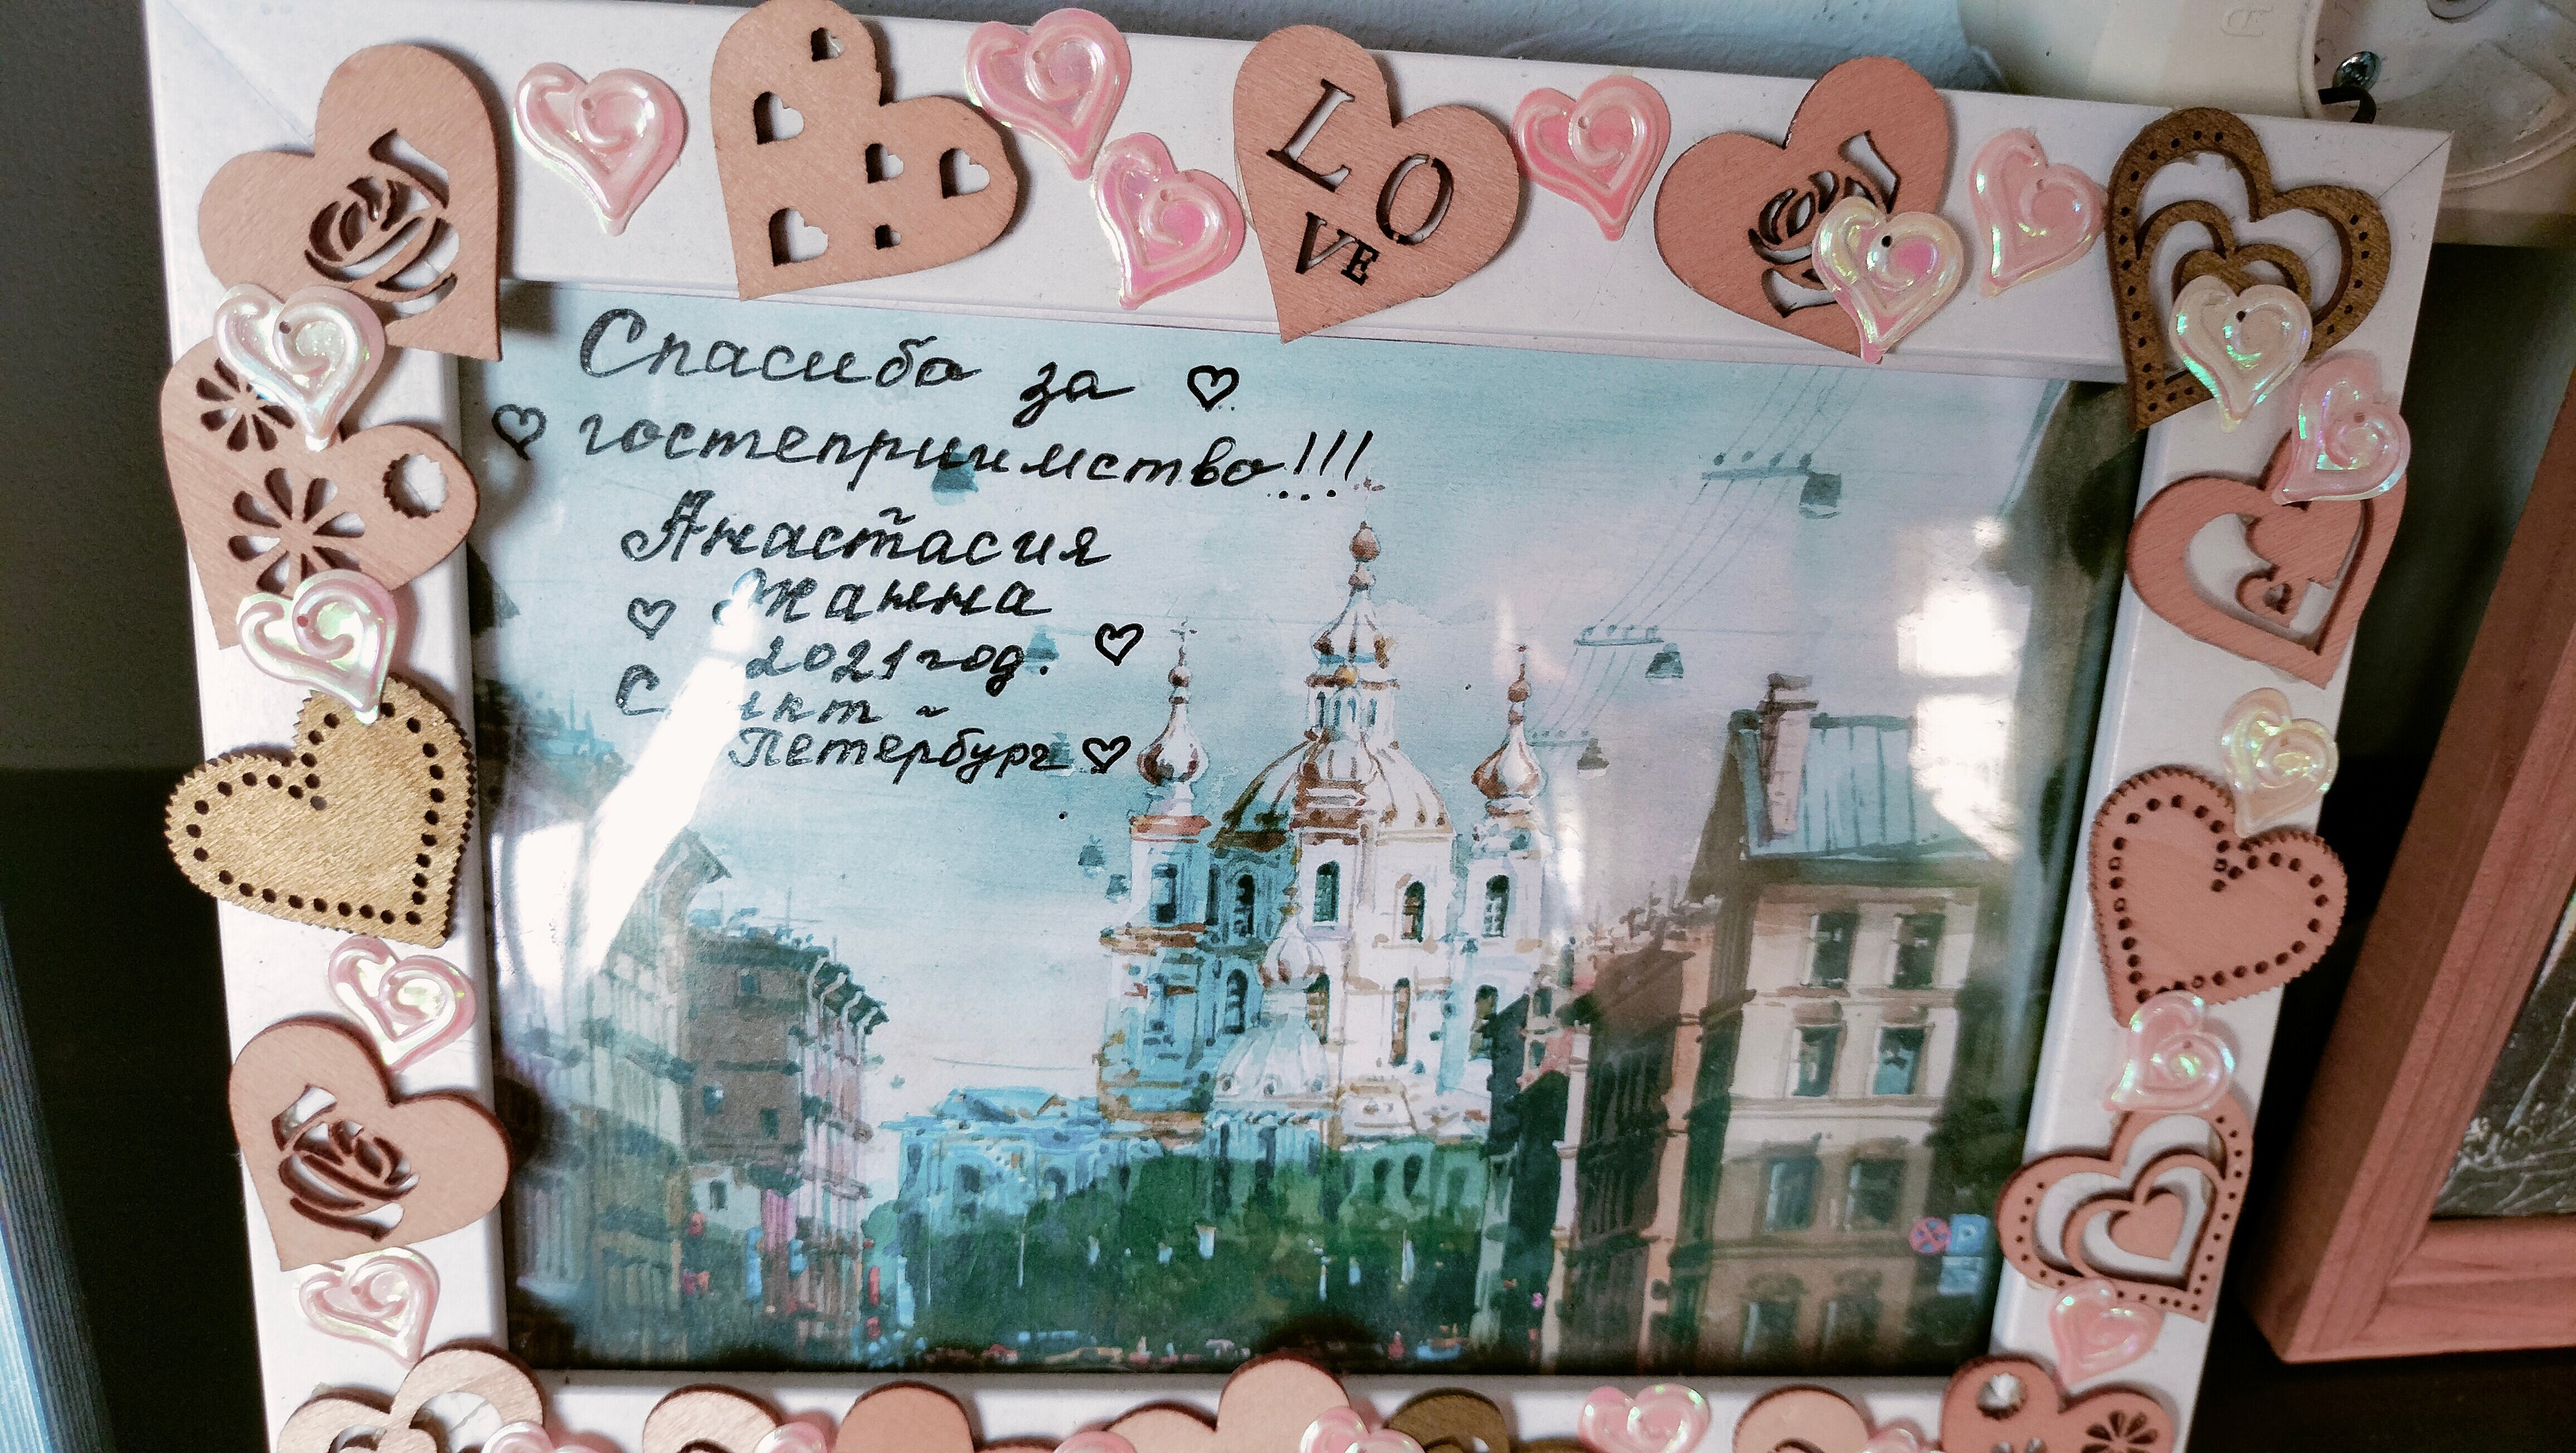 LO
VE
Спасибо за
гостеприимство!!!
Анастасия
Жанна
2021 год.
Санкт -
Петербург
P